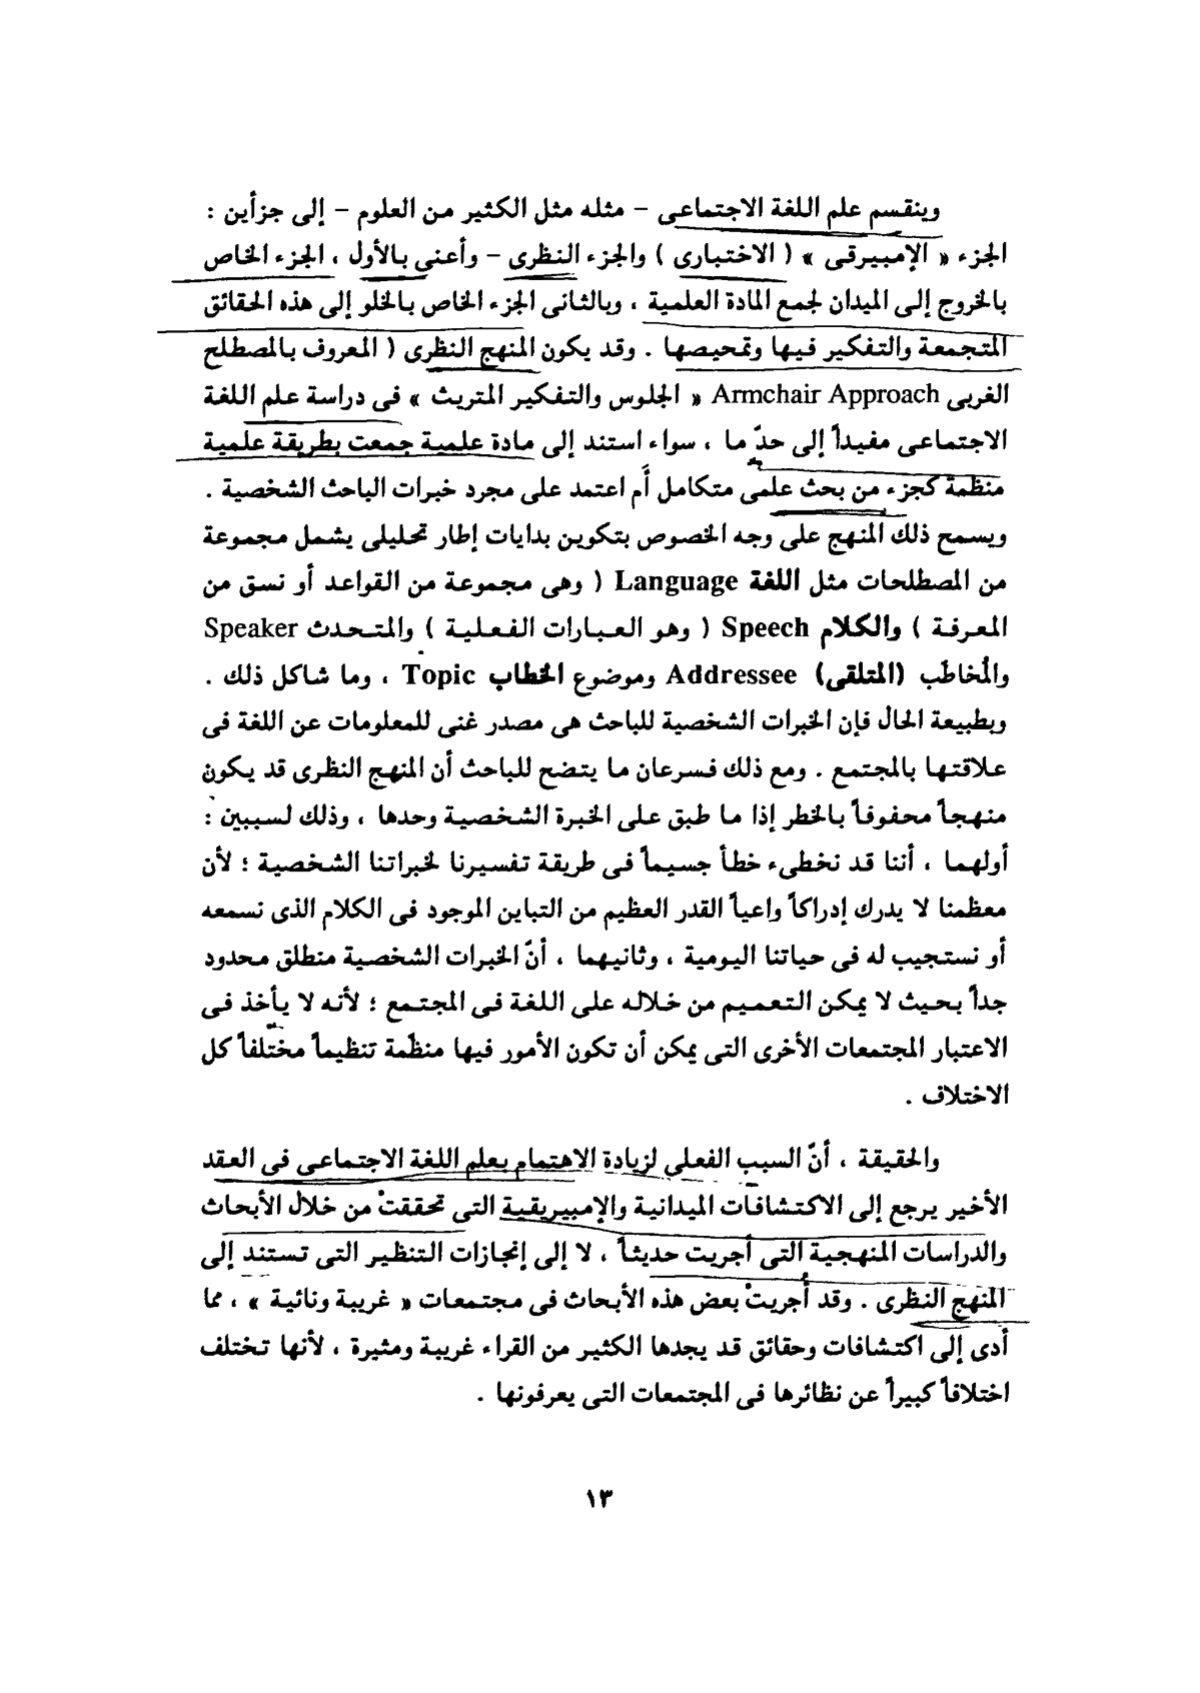 وينقسم علم اللغة الاجتماعى – مثله مثل الكثير من العلوم – إلى جزأين :
الجزء « الإمبيرقى » ( الاختبارى ) والجزء النظرى – وأعنى بالأول ، الجزء الخاص
بالخروج إلى الميدان لجمع المادة العلمية ، وبالثانى الجزء الخاص بالخلو إلى هذه الحقائق
المتجمعة والتفكير فيها وتمحيصها . وقد يكون المنهج النظرى ( المعروف بالمصطلح
الغربى Armchair Approach « الجلوس والتفكير المتريث » فى دراسة علم اللغة
الاجتماعى مفيداً إلى حدّ ما ، سواء استند إلى مادة علمية جمعت بطريقة علمية
منظمة كجزء من بحث علمى متكامل أم اعتمد على مجرد خبرات الباحث الشخصية .
ويسمح ذلك المنهج على وجه الخصوص بتكوين بدايات إطار تحليلى يشمل مجموعة
من المصطلحات مثل اللغة Language ( وهى مجموعة من القواعد أو نسق من
المعرفة ) والكلام Speech ( وهو العبارات الفعلية ) والمتحدث Speaker
والمُخاطَب (المتلقى) Addressee وموضوع الخطاب Topic ، وما شاكل ذلك .
وبطبيعة الحال فإن الخبرات الشخصية للباحث هى مصدر غنى للمعلومات عن اللغة فى
علاقتها بالمجتمع . ومع ذلك فسرعان ما يتضح للباحث أن المنهج النظرى قد يكون
منهجاً محفوفاً بالخطر إذا ما طبق على الخبرة الشخصية وحدها ، وذلك لسببين :
أولهما ، أننا قد نخطىء خطأ جسيماً فى طريقة تفسيرنا لخبراتنا الشخصية ؛ لأن
معظمنا لا يدرك إدراكاً واعياً القدر العظيم من التباين الموجود فى الكلام الذى نسمعه
أو نستجيب له فى حياتنا اليومية ، وثانيهما ، أنّ الخبرات الشخصية منطلق محدود
جداً بحيث لا يمكن التعميم من خلاله على اللغة فى المجتمع ؛ لأنه لا يأخذ فى
الاعتبار المجتمعات الأخرى التى يمكن أن تكون الأمور فيها منظّمة تنظيماً مختلفاً كل
الاختلاف .
والحقيقة ، أنّ السبب الفعلى لزيادة الاهتمام بعلم اللغة الاجتماعى فى العقد
الأخير يرجع إلى الاكتشافات الميدانية والإمبيريقية التى تحققتْ من خلال الأبحاث
والدراسات المنهجية التى أجريت حديثاً ، لا إلى إنجازات التنظير التى تستند إلى
المنهج النظرى . وقد أُجريتْ بعض هذه الأبحاث فى مجتمعات « غريبة ونائية » ، مما
أدى إلى اكتشافات وحقائق قد يجدها الكثير من القراء غريبة ومثيرة ، لأنها تختلف
اختلافاً كبيراً عن نظائرها فى المجتمعات التى يعرفونها .
١٣